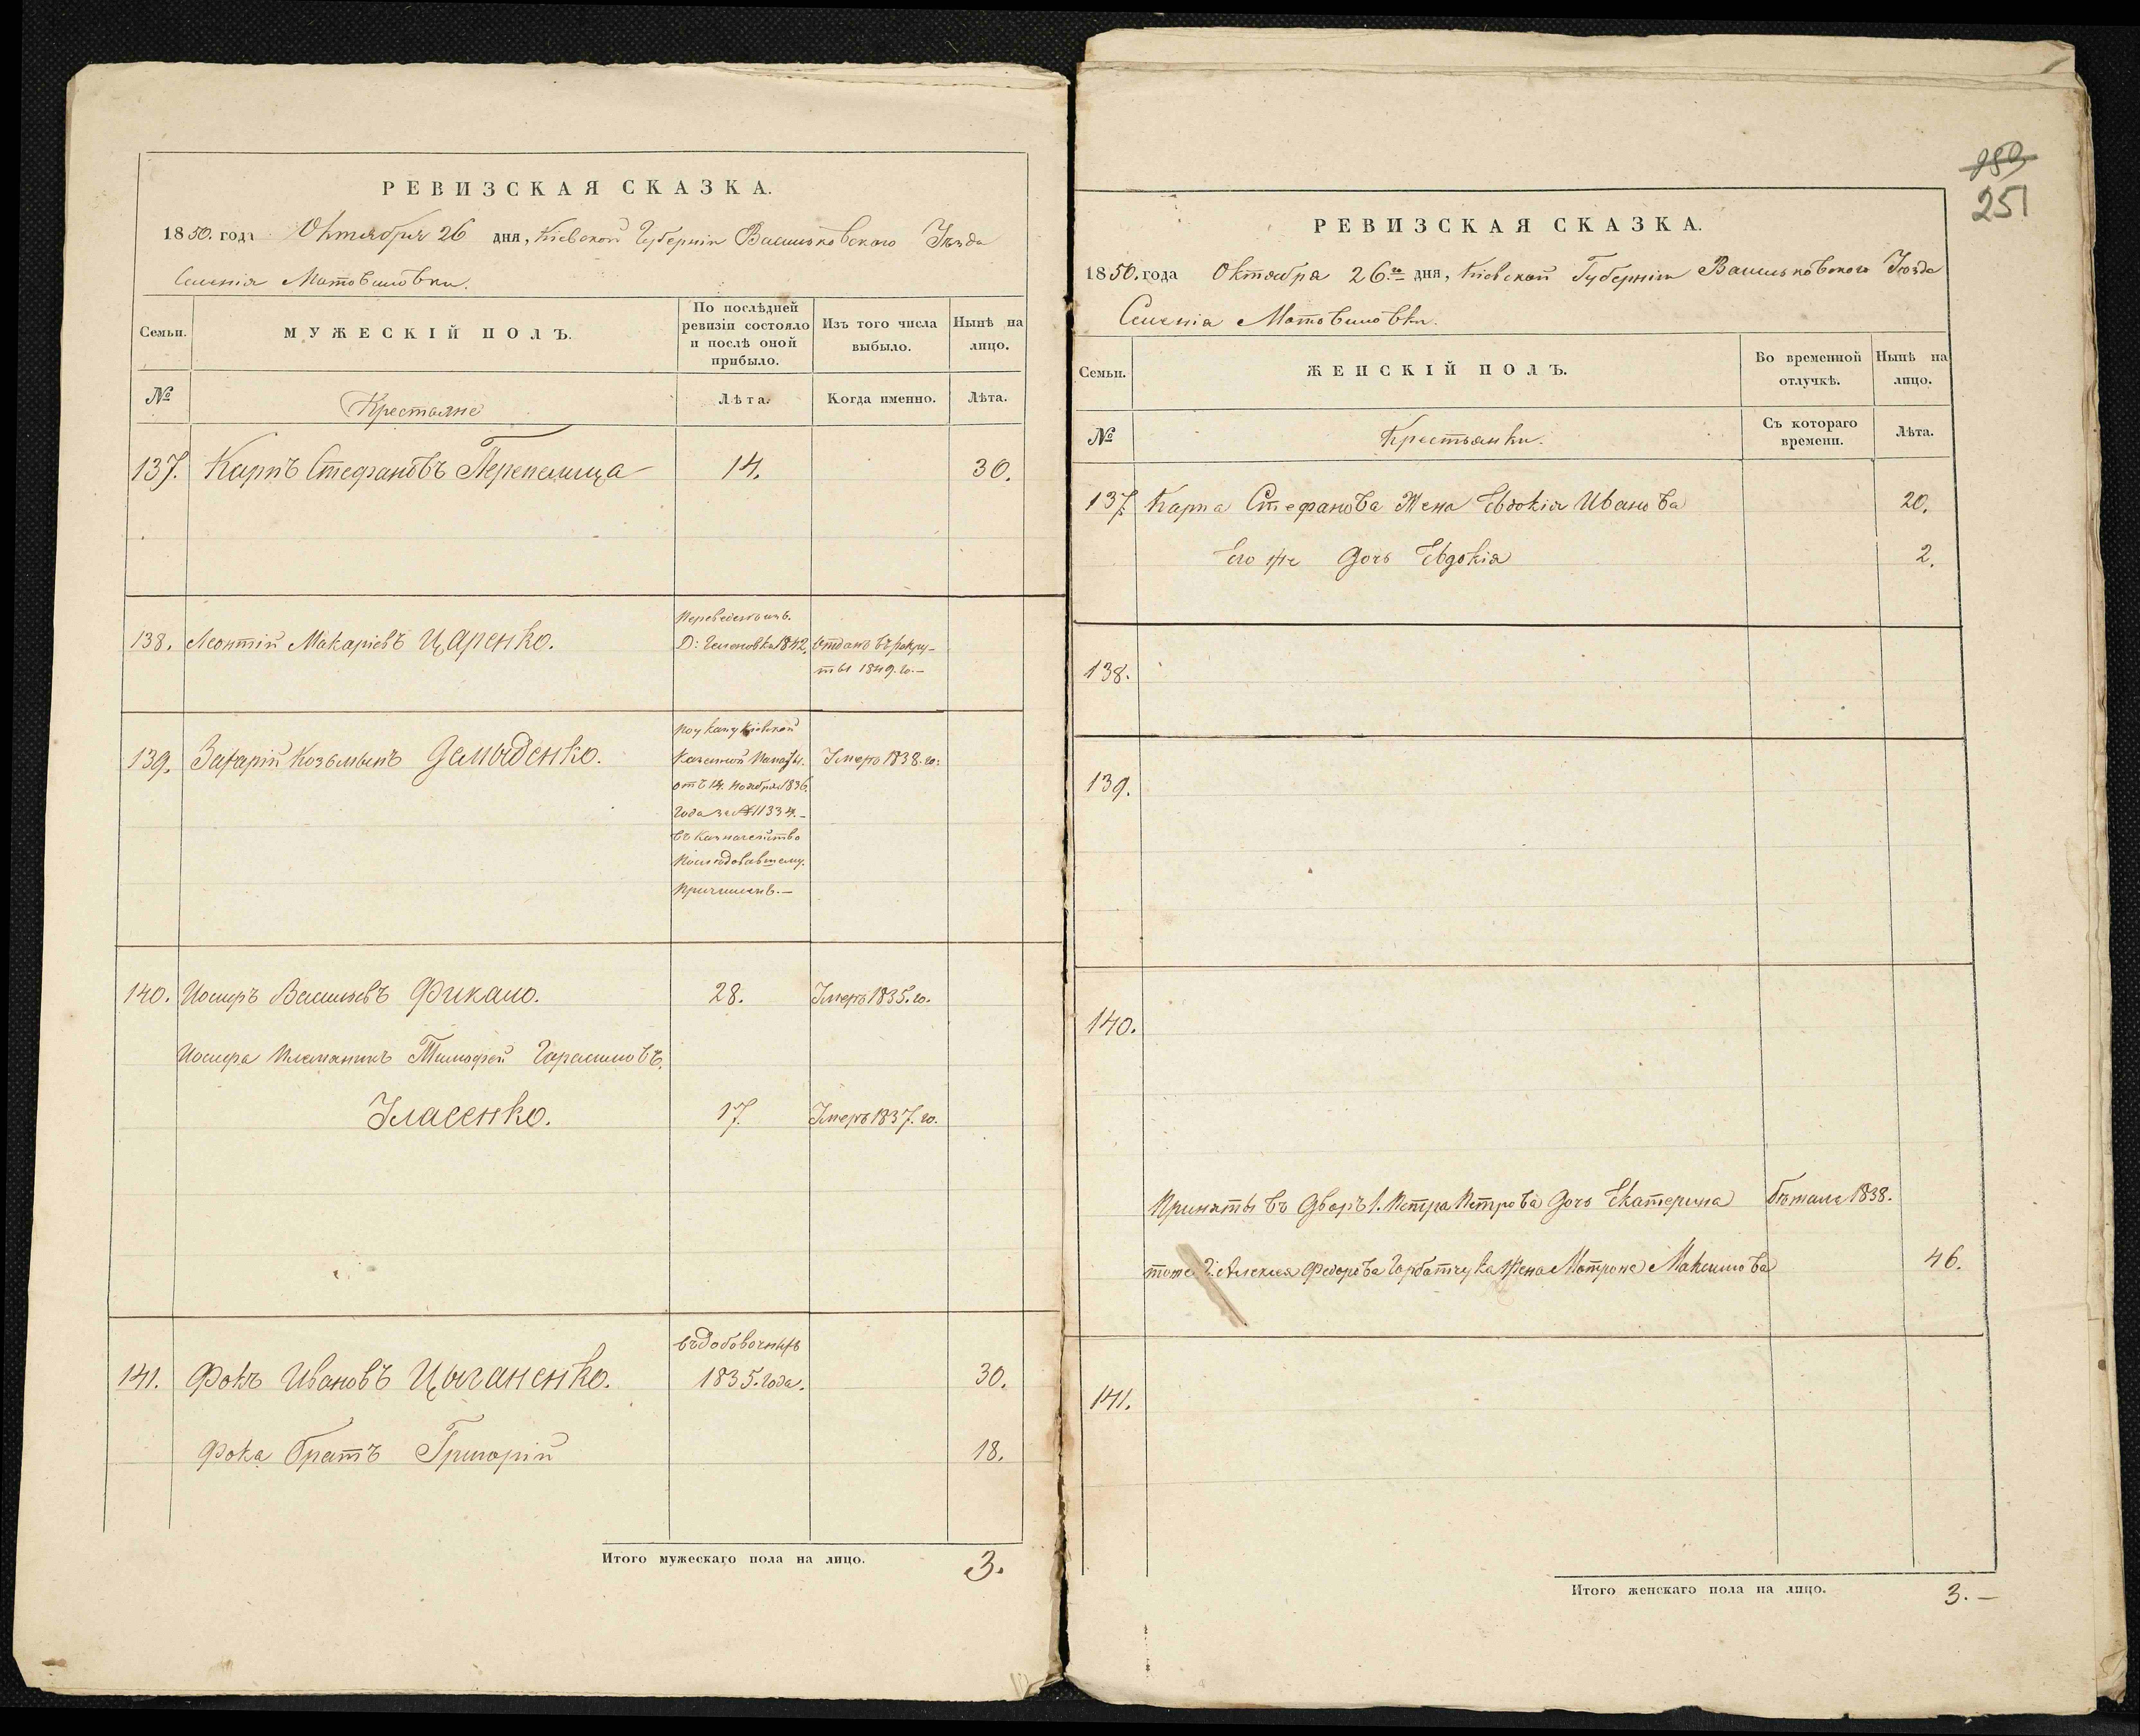 РЕВИЗСКАЯ СКАЗКА.
1850. года Октября 26 дня, Кіевской Губерніи Васильковскаго Уѣзда
Селенія Мотовиловки.
Семьи.
МУЖЕСКІЙ ПОЛЪ.
По послѣдней ревизіи состояло и послѣ оной прибыло.
Изъ того числа выбыло.
Нынѣ на лицо.
№
Крестьяне
Лѣта.
Когда именно.
Лѣта.
137. Карпъ Стефановъ Перепелица 14. 30.
Переведенъ изъ
138. Леонтій Макаріевъ Царенко. Д: 1842. Отданъ въ рекру-
ты 1849. го.—
По указу Кіевской
139. Захарій Козьминъ Демиденко. Казенной Палаты. Умеръ 1838. го:
отъ 14. Ноября 1836.
Года за № 11334.—
въ Казначейство
Последовавшему.
Причисленъ.—
140. Иосифъ Васильевъ Фикало. 28. Умеръ 1835. го.
Иосифа Племянникъ Тимофей Гарасимовъ.
Уласенко. 17. Умеръ 1837. го.
въ добовочныхъ
141. Фокъ Ивановъ Цыганенко. 1835. Года. 30.
Фока братъ Григорій 18.
Итого мужескаго пола на лицо. 3.
253
251
РЕВИЗСКАЯ СКАЗКА.
1850. года Октября 26.го дня, Кіевской Губерніи Васильковского Уѣзда
Селенія Мотовиловки.
Семьи.
ЖЕНСКІЙ ПОЛЪ.
Во временной отлучкѣ.
Нынѣ на лицо.
№
Крестьянки.
Съ котораго времени.
Лѣта.
137. Карпа Стефанова Жена Евдокія Иванова 20.
Его же Дочь Евдокія 2.
138.
139.
140.
Приняты въ Дворъ 1. Петра Петрова Дочь Екатерина бѣжала 1838.
тоже 2. Алексея Федорова Горбатчука Жена Матрона Максимова 46.
141.
Итого женскаго пола на лицо. 3.—